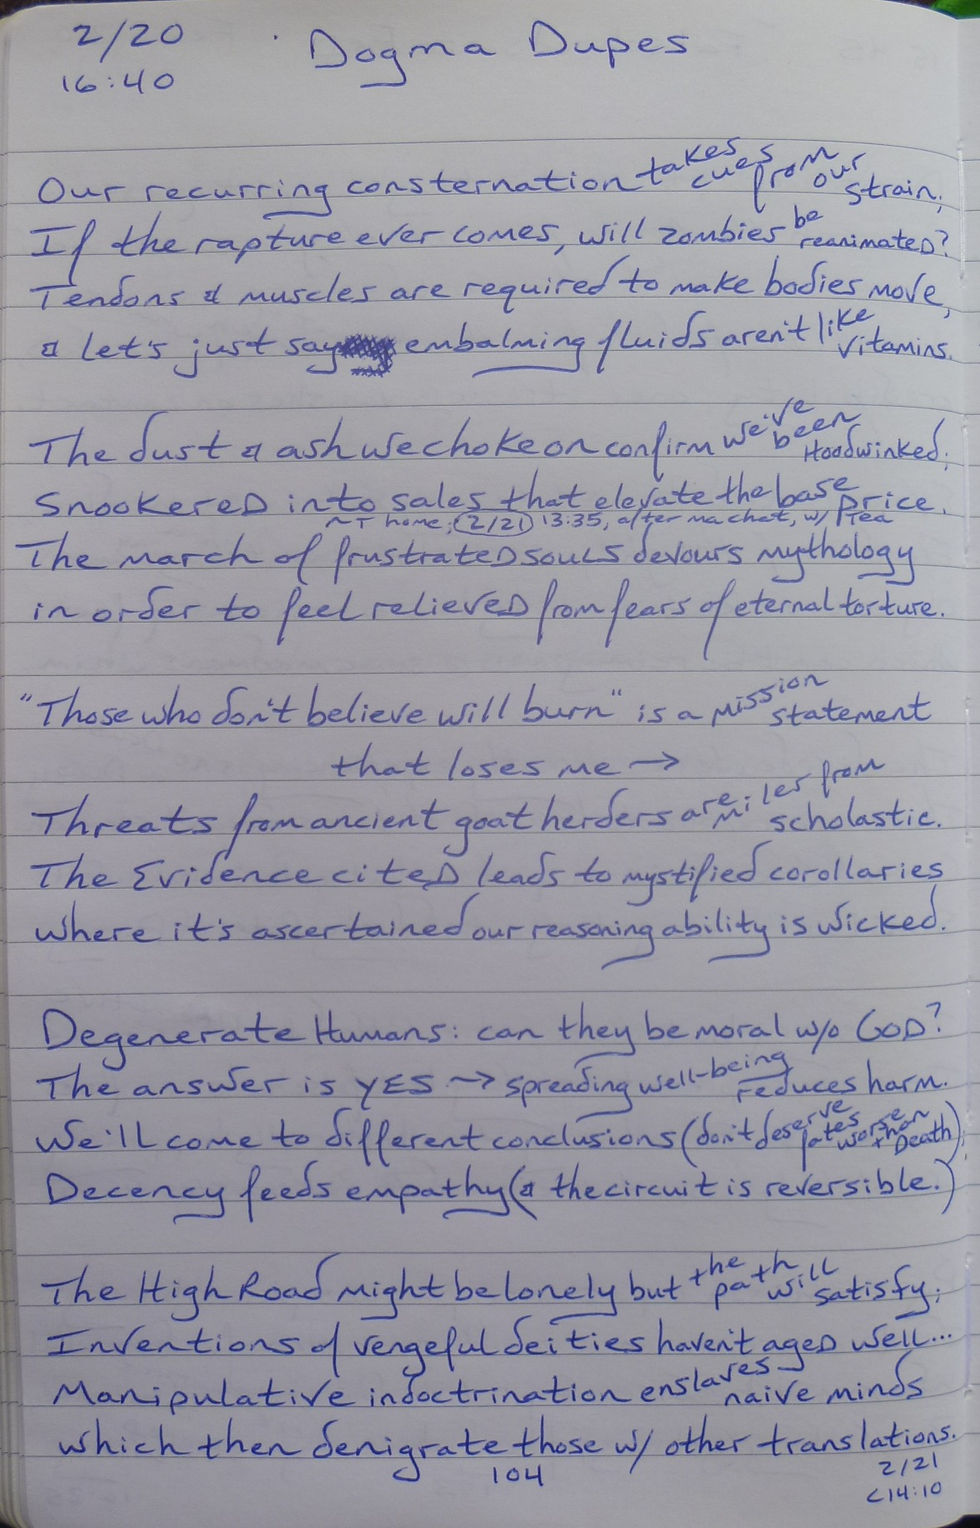 2/20
16:40
Dogma Dupes
Our recurring consternation takes cues from our strain;
If the rapture ever comes, will zombies be reanimated?
Tendons & muscles are required to make bodies move,
& let's just say embalming fluids aren't like vitamins.
The dust & ash we choke on confirm we've been Hoodwinked;
Snookered into sales that elevate the base price.
~T home; 2/21 13:35, after ma chat, w/ Tea
The march of frustrated souls devours mythology
in order to feel relieved from fears of eternal torture.
"Those who don't believe will burn" is a mission statement
that loses me →
Threats from ancient goat herders are miles from scholastic.
The Evidence cited leads to mystified corollaries
where it's ascertained our reasoning ability is wicked.
Degenerate Humans: can they be moral w/o GOD?
The answer is YES → spreading well-being reduces harm.
We'll come to different conclusions (don't deserve fates worse than Death);
Decency feeds empathy (& the circuit is reversible.)
The High Road might be lonely but the path will satisfy;
Inventions of vengeful deities haven't aged well...
Manipulative indoctrination enslaves naive minds
which then denigrate those w/ other translations.
104
2/21
<14:10